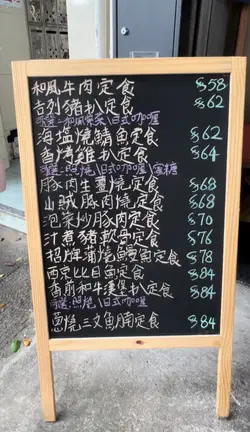 和風牛肉定食 $58
吉列豬扒定食 $62
可選:和風紫菜\日式咖喱
海塩燒鯖魚定食 $62
香烤雞扒定食 $64
可選:照燒\日式咖喱\蜜糖
豚肉生薑燒定食 $68
山賊豚肉燒定食 $68
泡菜炒豚肉定食 $70
汁煮豬軟骨定食 $76
招牌蒲燒鰻魚定食 $78
西京比目魚定食 $84
香煎和牛漢堡扒定食 $84
可選:照燒\日式咖喱
蔥燒三文魚腩定食 $84